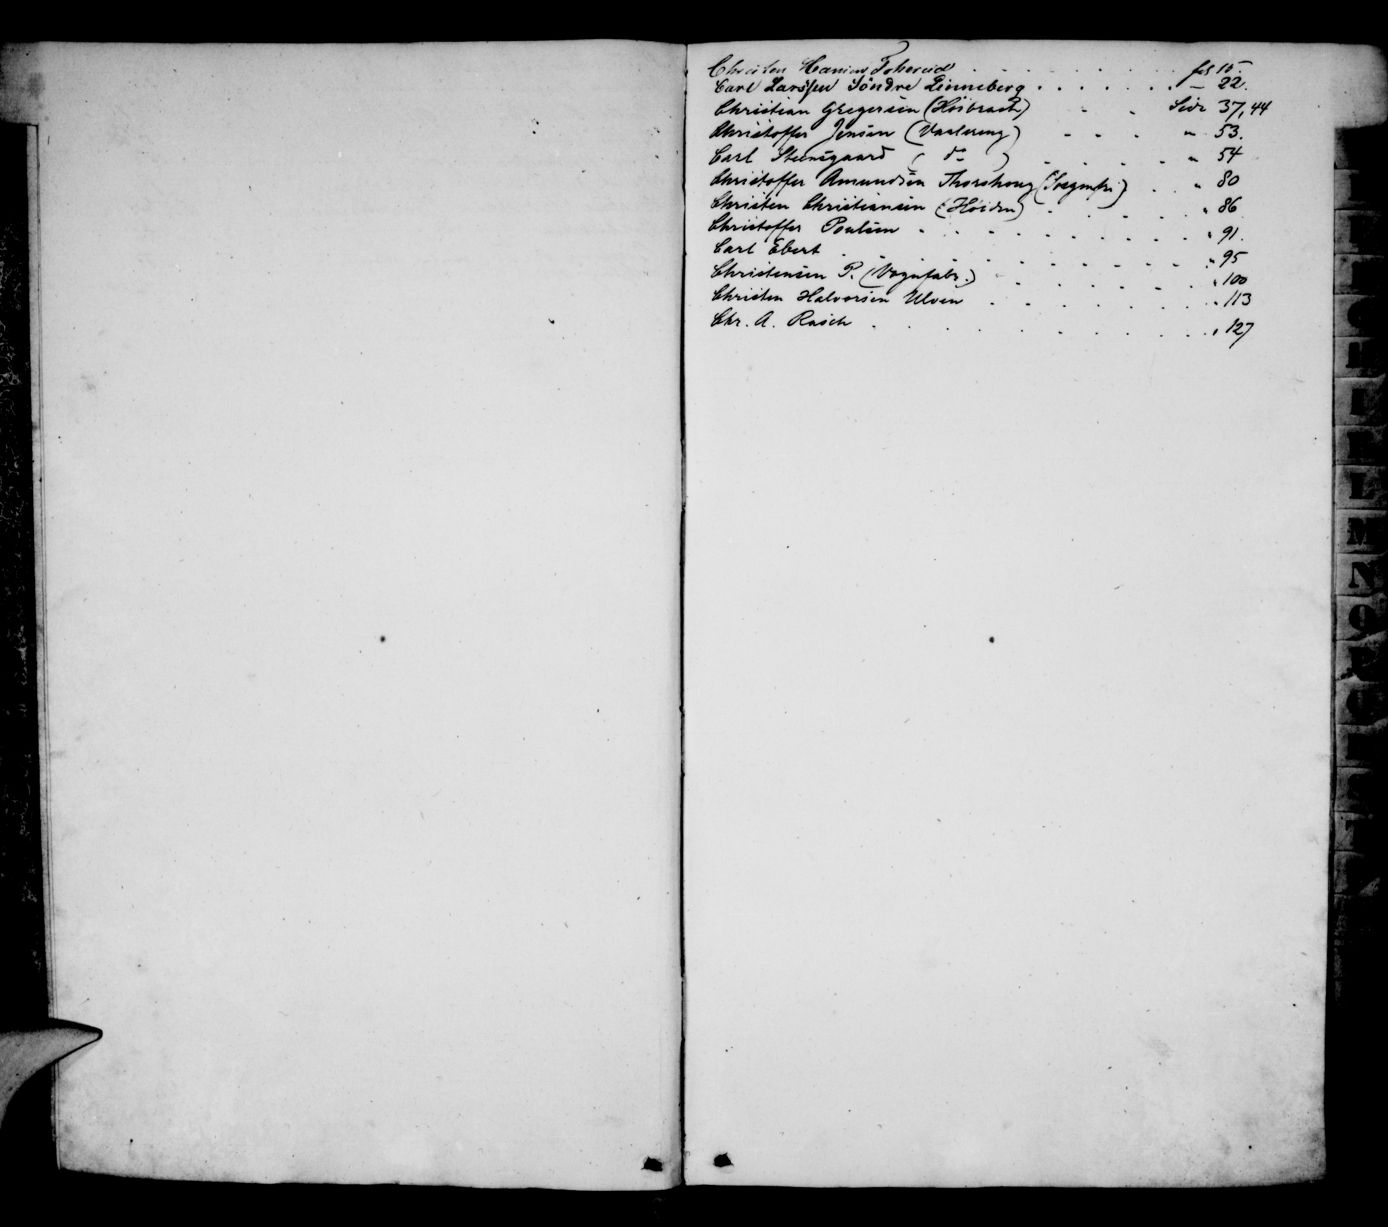 Christen Hansen . . . . . . . fol 15
Carl Larssen Söndre Linneberg . . . . . . . — 22.
Christian Gregersen (Höibraaten) - - Side 37, 44
Christoffer Jensen (Vaalereng) - - - " 53.
Carl Steensgaard ( do ) . . . . " 54
Christoffer Amundsen Thorshoug (Sognepr.) . . " 80
Christen Christiansen (Höiden) . . . . . " 86
Christoffer Poulsen . . . . . . . . " 91.
Carl Ebert . . . . . . . . . " 95
Christensen P. (Vognfabr.) . . . . . . " 100
Christen Halvorsen Ulven . . . . . . " 113
Chr. A. Rasch . . . . . . . . " 127
L
M
N
O
P